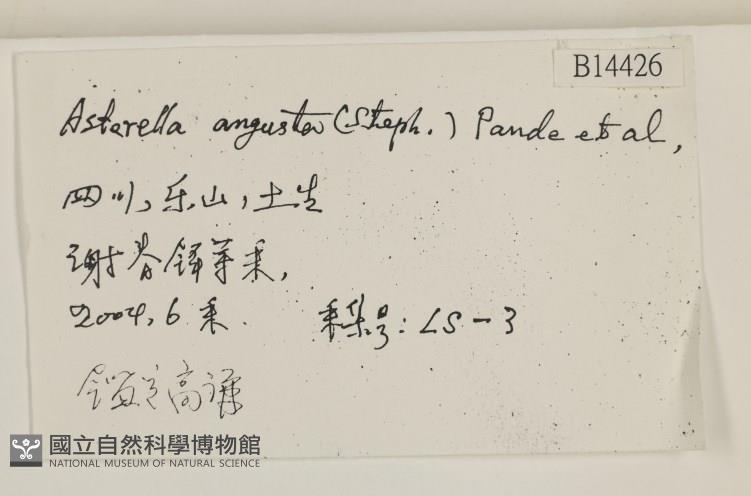 B14426
Asterella angusta (Steph.) Pande et al,
四川,乐山,土生
谢春 等采,
2004,6采. 采集号: LS-3
鉴定 高谦
國立自然科學博物館
NATIONAL MUSEUM OF NATURAL SCIENCE